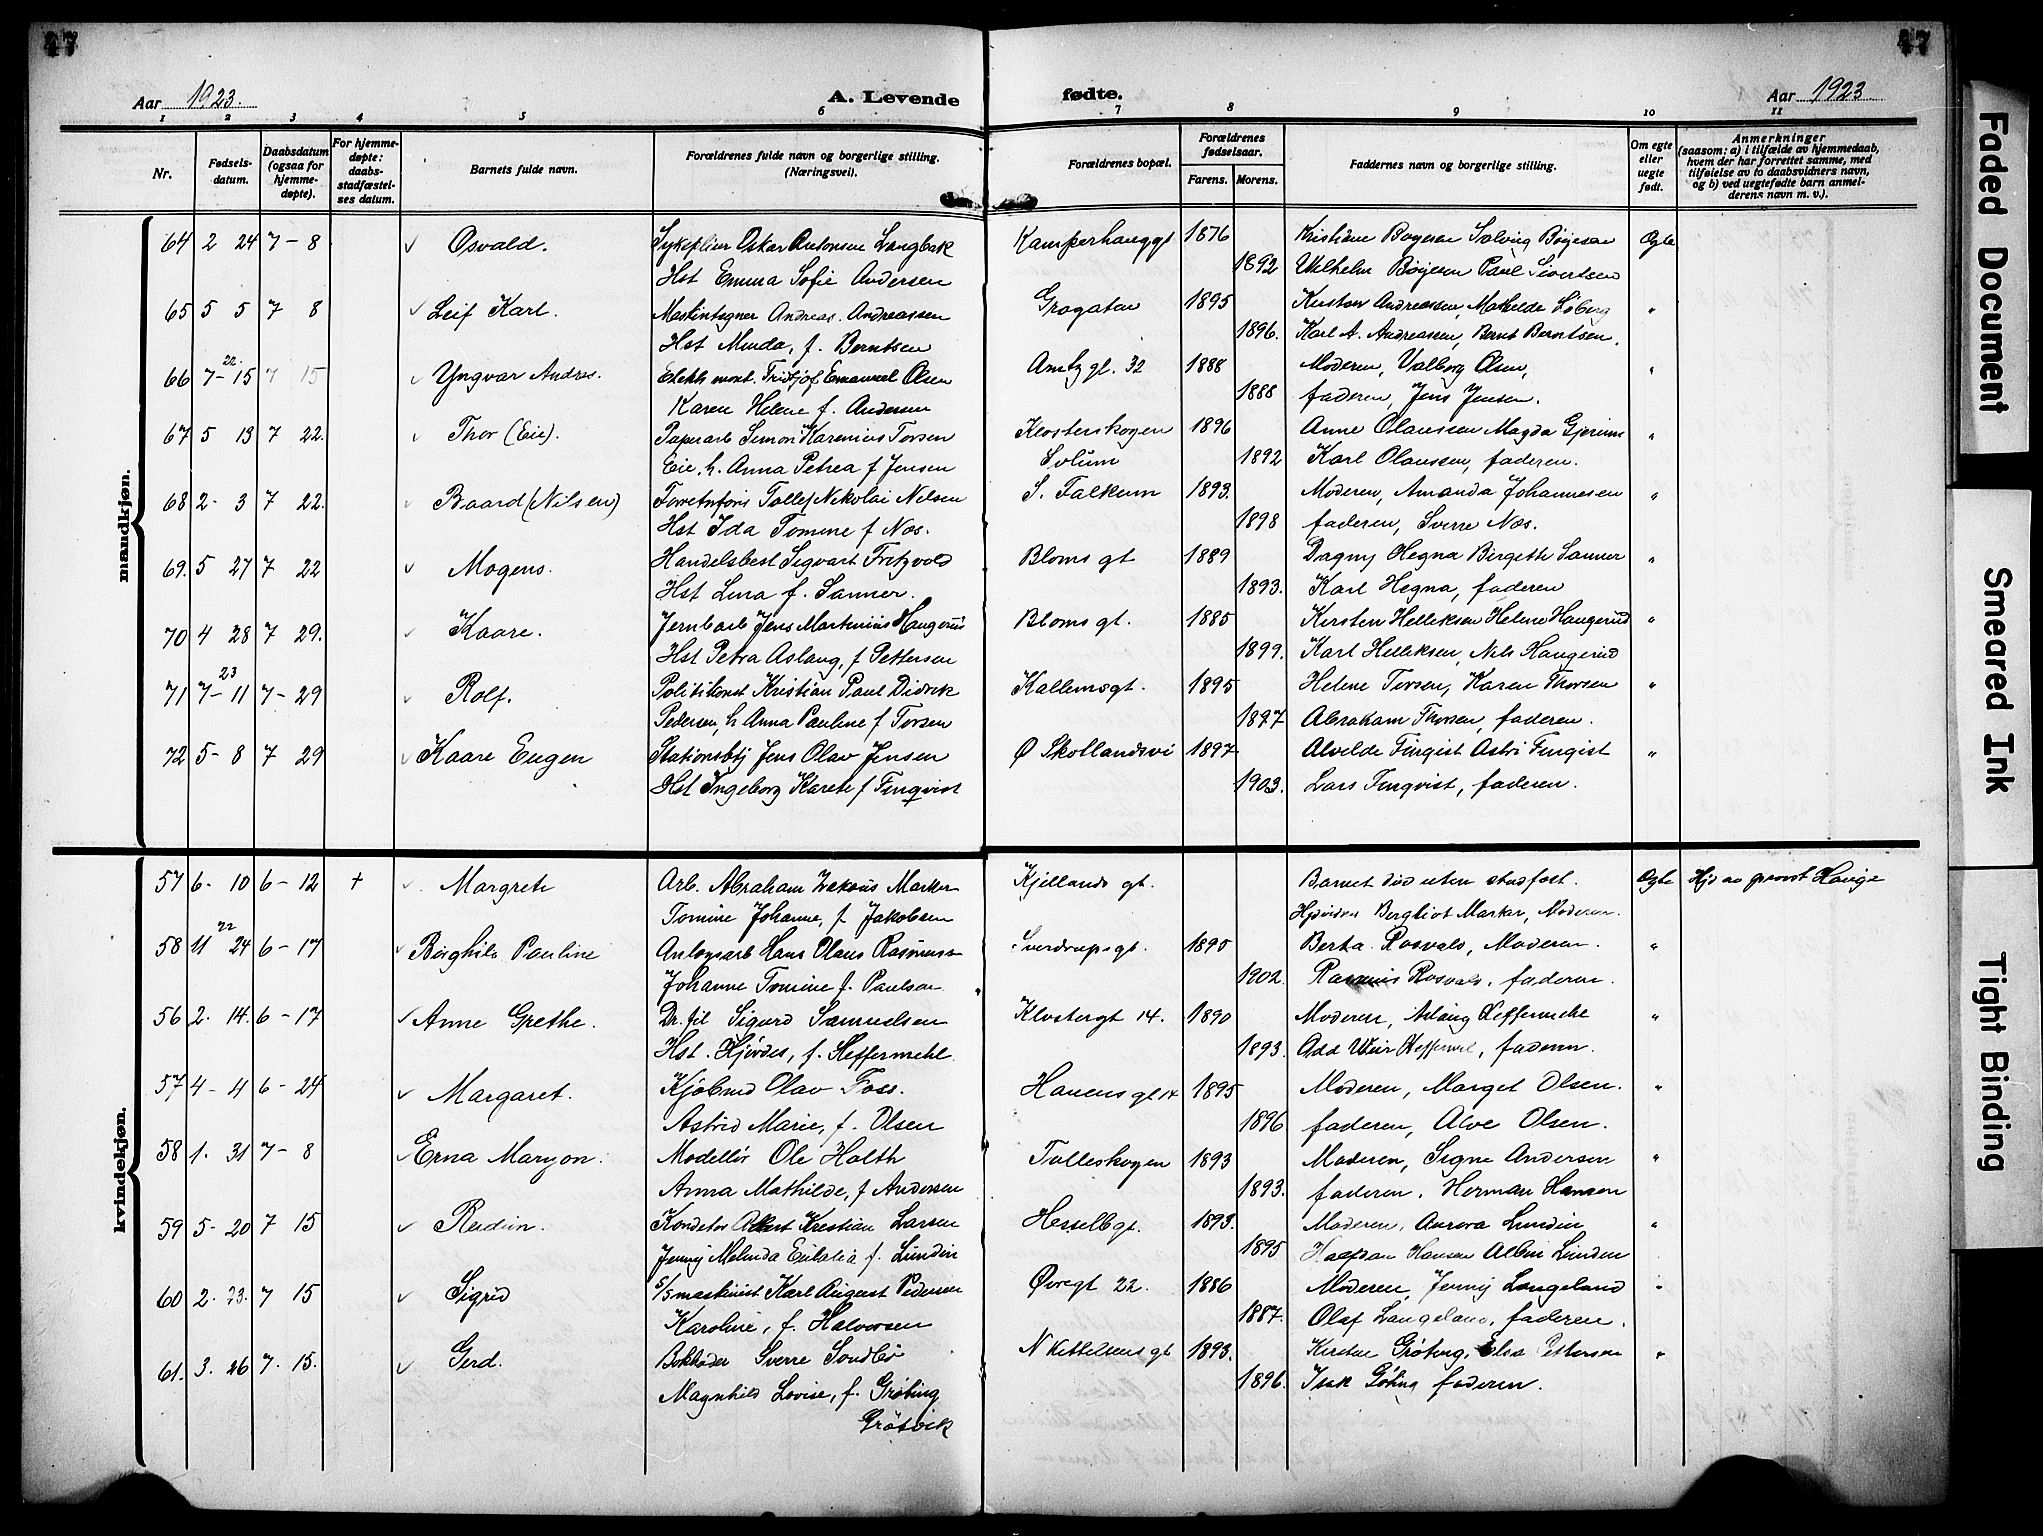 47
47
Aar 1923.
A. Levende
fødte.
Aar 1923
1 2 3 4 5 6 7 8 9 10 11
Nr.
Fødsels-
datum.
Daabsdatum
(ogsaa for
hjemme-
døpte).
For hjemme-
døpte:
daabs-
stadfæstel-
ses datum.
Barnets fulde navn.
Forældrenes fulde navn og borgerlige stilling.
(Næringsvei).
Forældrenes bopæl.
Forældrenes
fødselsaar.
Farens. Morens.
Faddernes navn og borgerlige stilling.
Om egte
eller
uegte
født.
Anmerkninger
(saasom: a) i tilfælde av hjemmedaab,
hvem der har forrettet samme, med
tilføielse av to daabsvidners navn,
og b) ved uegtefødte barn anmel-
derens navn m. v.).
mandkjøn.
64 2 24 7 - 8 Osvald. Oskar Antonsen Langbak Kamperhauggt 1876 Kristiane Bøyesen Solveig Bøyesen Egte
Hst Emma Sofie Andersen 1892 Wilhelm Bøyesen Paul Sivertsen
65 5 5 7 8 Leif Karl. Maskintegner Andreas Andreassen Grogaten 1895 Kirsten Andreassen, Mathilde Søberg "
Hst Minda, f. Berntsen 1896. Karl A. Andreassen, Bernt Berntsen,
66 7-15 22 7 15 Yngvar Andres. Elektr mont. Fritjof Emanuel Olsen Amtzgt. 32 1888 Moderen, Valborg Olsen, "
Karen Helene f. Andersen 1888 faderen, Jens Jensen.
67 5 13 7 22. Thor (Eie). Papirarb Simon Karenius Torsen Klosterskogen 1896 Anne Olaussen Magda Gjerum "
Eie, h. Anna Petrea f Jensen Solum 1892 Karl Olaussen, faderen.
68 2- 3 7 22. Baard (Nilsen) Tollef Nikolai Nilsen S. Falkum 1893. Moderen, Amanda Johannesen "
Hst Ida Tomine f Næs. 1898 faderen, Sverre Næs.
69. 5 27 7 22 Mogens. Handelsbest Sigvart Fritzvold Bloms gt 1889 Dagny Hegna Birgethe Sanner "
Hst Lina f. Sanner. 1893. Karl Hegna, faderen
70 4 28 7 29. Kaare. Jernbarb Jens Martinius Haugerud Bloms gt. 1885 Kirsten Helleksen Helene Haugerud "
Hst Petra Aslaug, f Pettersen 1899. Karl Helleksen, Nils Haugerud
71 7-11 23 7-29 Rolf. Politikonst Kristian Paul Didrik Kallemsgt. 1895 Helene Torsen, Karen Thorsen "
Pedersen, h Anna Pauline f Torsen 1897 Abraham Thorsen, faderen.
72 5-8 7 29 Kaare Eugen Stationsbtj Jens Olav Jensen Ø Skotlandsvi 1897 Alvilde Finqist Astri Finqist "
Hst Ingeborg Karete f Finqvist 1903. Lars Finqvist, faderen.
kvindekjøn.
57 6- 10 6-12 + Margrete Arb. Abraham Markus Marker Kjellands gt. Barnet død uten stadfæst. Egte Hjd av provst Hauge
Tomine Johanne, f Jakobsen Bergliot Marker, Moderen.
58 11 24 22 6-17 Borghild Pauline Anlegsarb Hans Olaus Rasmussen Sverdrupsgt. 1890 Berta Rosvald, Moderen. "
Johanne Tomine f. Paulsen 1902. Rasmus Rosvald, faderen.
56 2. 14. 6-17 Anne Grethe. Dr. fil Sigurd Samuelsen Klostergt 14. 1890 Moderen, Aslaug Heffermehl "
Hst. Hjørdis, f. Heffermehl 1893. Odd Weir Heffermehl, faderen.
57 4-4 6-24 Margaret. Kjøbmd Olav Foss. Hanens gt 14 1895 Moderen, Marget Olsen. "
Astrid Marie, f. Olsen 1896 faderen, Alve Olsen.
58 1. 31 7-8 Erna Maryon. Modellør Ole Holth Tolleskogen 1893 Moderen, Signe Andersen "
Anna Mathilde, f Andersen 1893. faderen. Herman Hansen
59 5-20 7 15 Reidun. Konditor Albert Kristian Larsen Hesselbgt. 1893. Moderen, Aurora Lundin "
Jenny Melinda Eulalia f. Lundin 1895 Haafdan Hansen Albin Lundin
60 2. 23. 7 15 Sigrid S/S maskinist Karl August Pedersen Øvregt 22. 1886 Moderen, Jenny Langeland "
Karoline, f. Halvorsen 1887. Olaf Langeland, faderen.
61. 3. 26 7. 15. Gerd. Bokholder Sverre Sondbø N Kittelsens gt 1893. Kirsten Grøting, Elsa Pettersen "
Magnhild Lovise, f. Grøting 1896. Isak Gøting faderen.
Grøtvik
Faded Document
Smeared Ink
Tight Binding